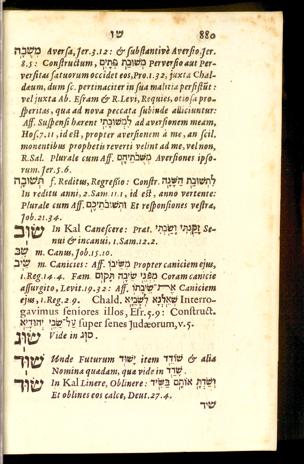 ש ו 880
מְשׁוּבָה Aversa, Jer.3.12: & substantivè Aversio. Jer.
8.5: Constructum, מְשׁוּבַת פְּתָיִם Perversio aut Per-
versitas fatuorum occidet eos, Pro.1.32, juxta Chal-
dæum, dum sc. pertinaciter in sua malitia persistût:
vel juxta Ab. Esram & R. Levi, Requies, otiosa pro-
speritas, qua ad nova peccata subinde alliciuntur:
Aff. Suspensi hærent לִמְשׁוּבָתִי ad aversionem meam,
Hos.7.11, id est, propter aversionem à me, an scil.
monentibus prophetis reverti velint ad me, vel non,
R.Sal. Plurale cum Aff. מְשֻׁבֹתֵיהֶם Aversiones ipso-
rum. Jer.5.6.
תְּשׁוּבָה f. Reditus, Regressio: Constr. לִתְשׁוּבַת הַשָּׁנָה
In reditu anni, 2.Sam.11.1, id est, anno vertente:
Plurale cum Aff. וּתְשׁוּבֹתֵיכֶם Et responsiones vestræ,
Job.21.34.
שׂוּב In Kal Canescere: Præt. זָקַנְתִּי וָשַׂבְתִּי Se-
nui & incanui, 1.Sam.12.2.
שָׂב m. Canus, Job.15.10.
שֵׂיב m. Canicies: Aff. מִשֵּׂיבוֹ Propter caniciem ejus,
1.Reg.14.4. Fæm. מִפְּנֵי שֵׂיבָה תָּקוּם Coram canicie
assurgito, Levit.19.32: Aff. שֵׂיבָתוֹ Caniciem
ejus, 1.Reg.2.9. Chald. שְׁאֵלְנָא לְשָׂבַיָּא Interro-
gavimus seniores illos, Esr.5.9: Construct.
עַל־שָׂבֵי יְהוּדָיֵא super senes Judæorum, v.5.
שׂוּג Vide in סוּג.
שׁוּד Unde Futurum יָשׁוּד item שׁוֹדֵד & alia
Nomina quædam, quæ vide in שָׁדַד.
שׂוּד In Kal Linere, Oblinere: וְשַׂדְתָּ אוֹתָם בַּשִּׂיד
Et oblines eos calce, Deut.27.4.
שׂיד